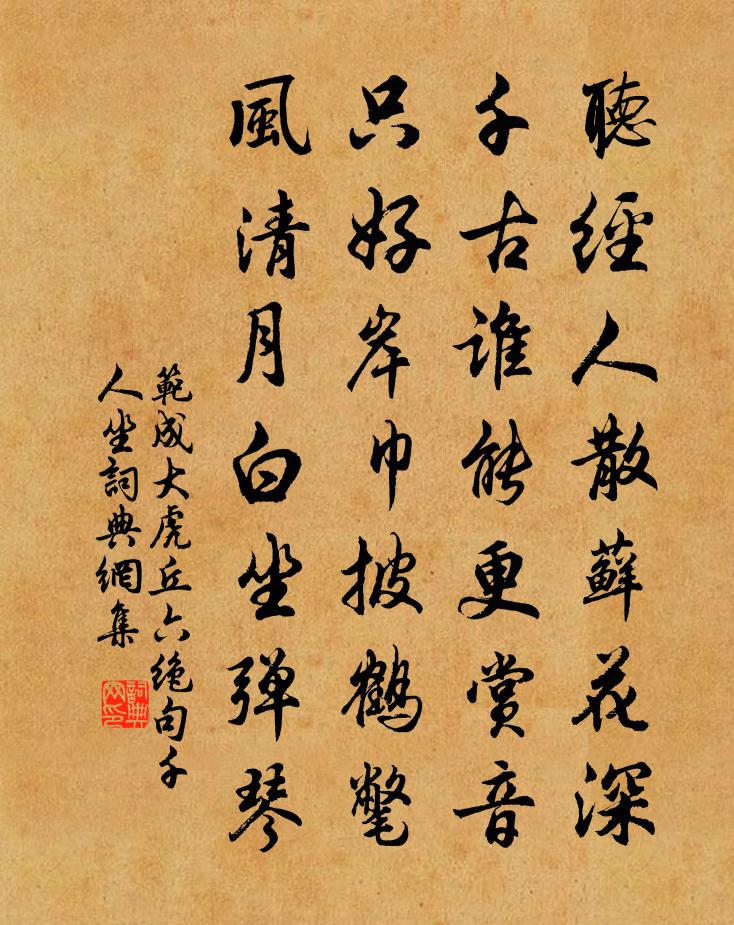 聽經人散蘚花深
千古誰能更賞音
只好岸巾披鶴氅
風清月白坐彈琴
範成大虎丘六絕句千
人坐詞典網集
詞典网印